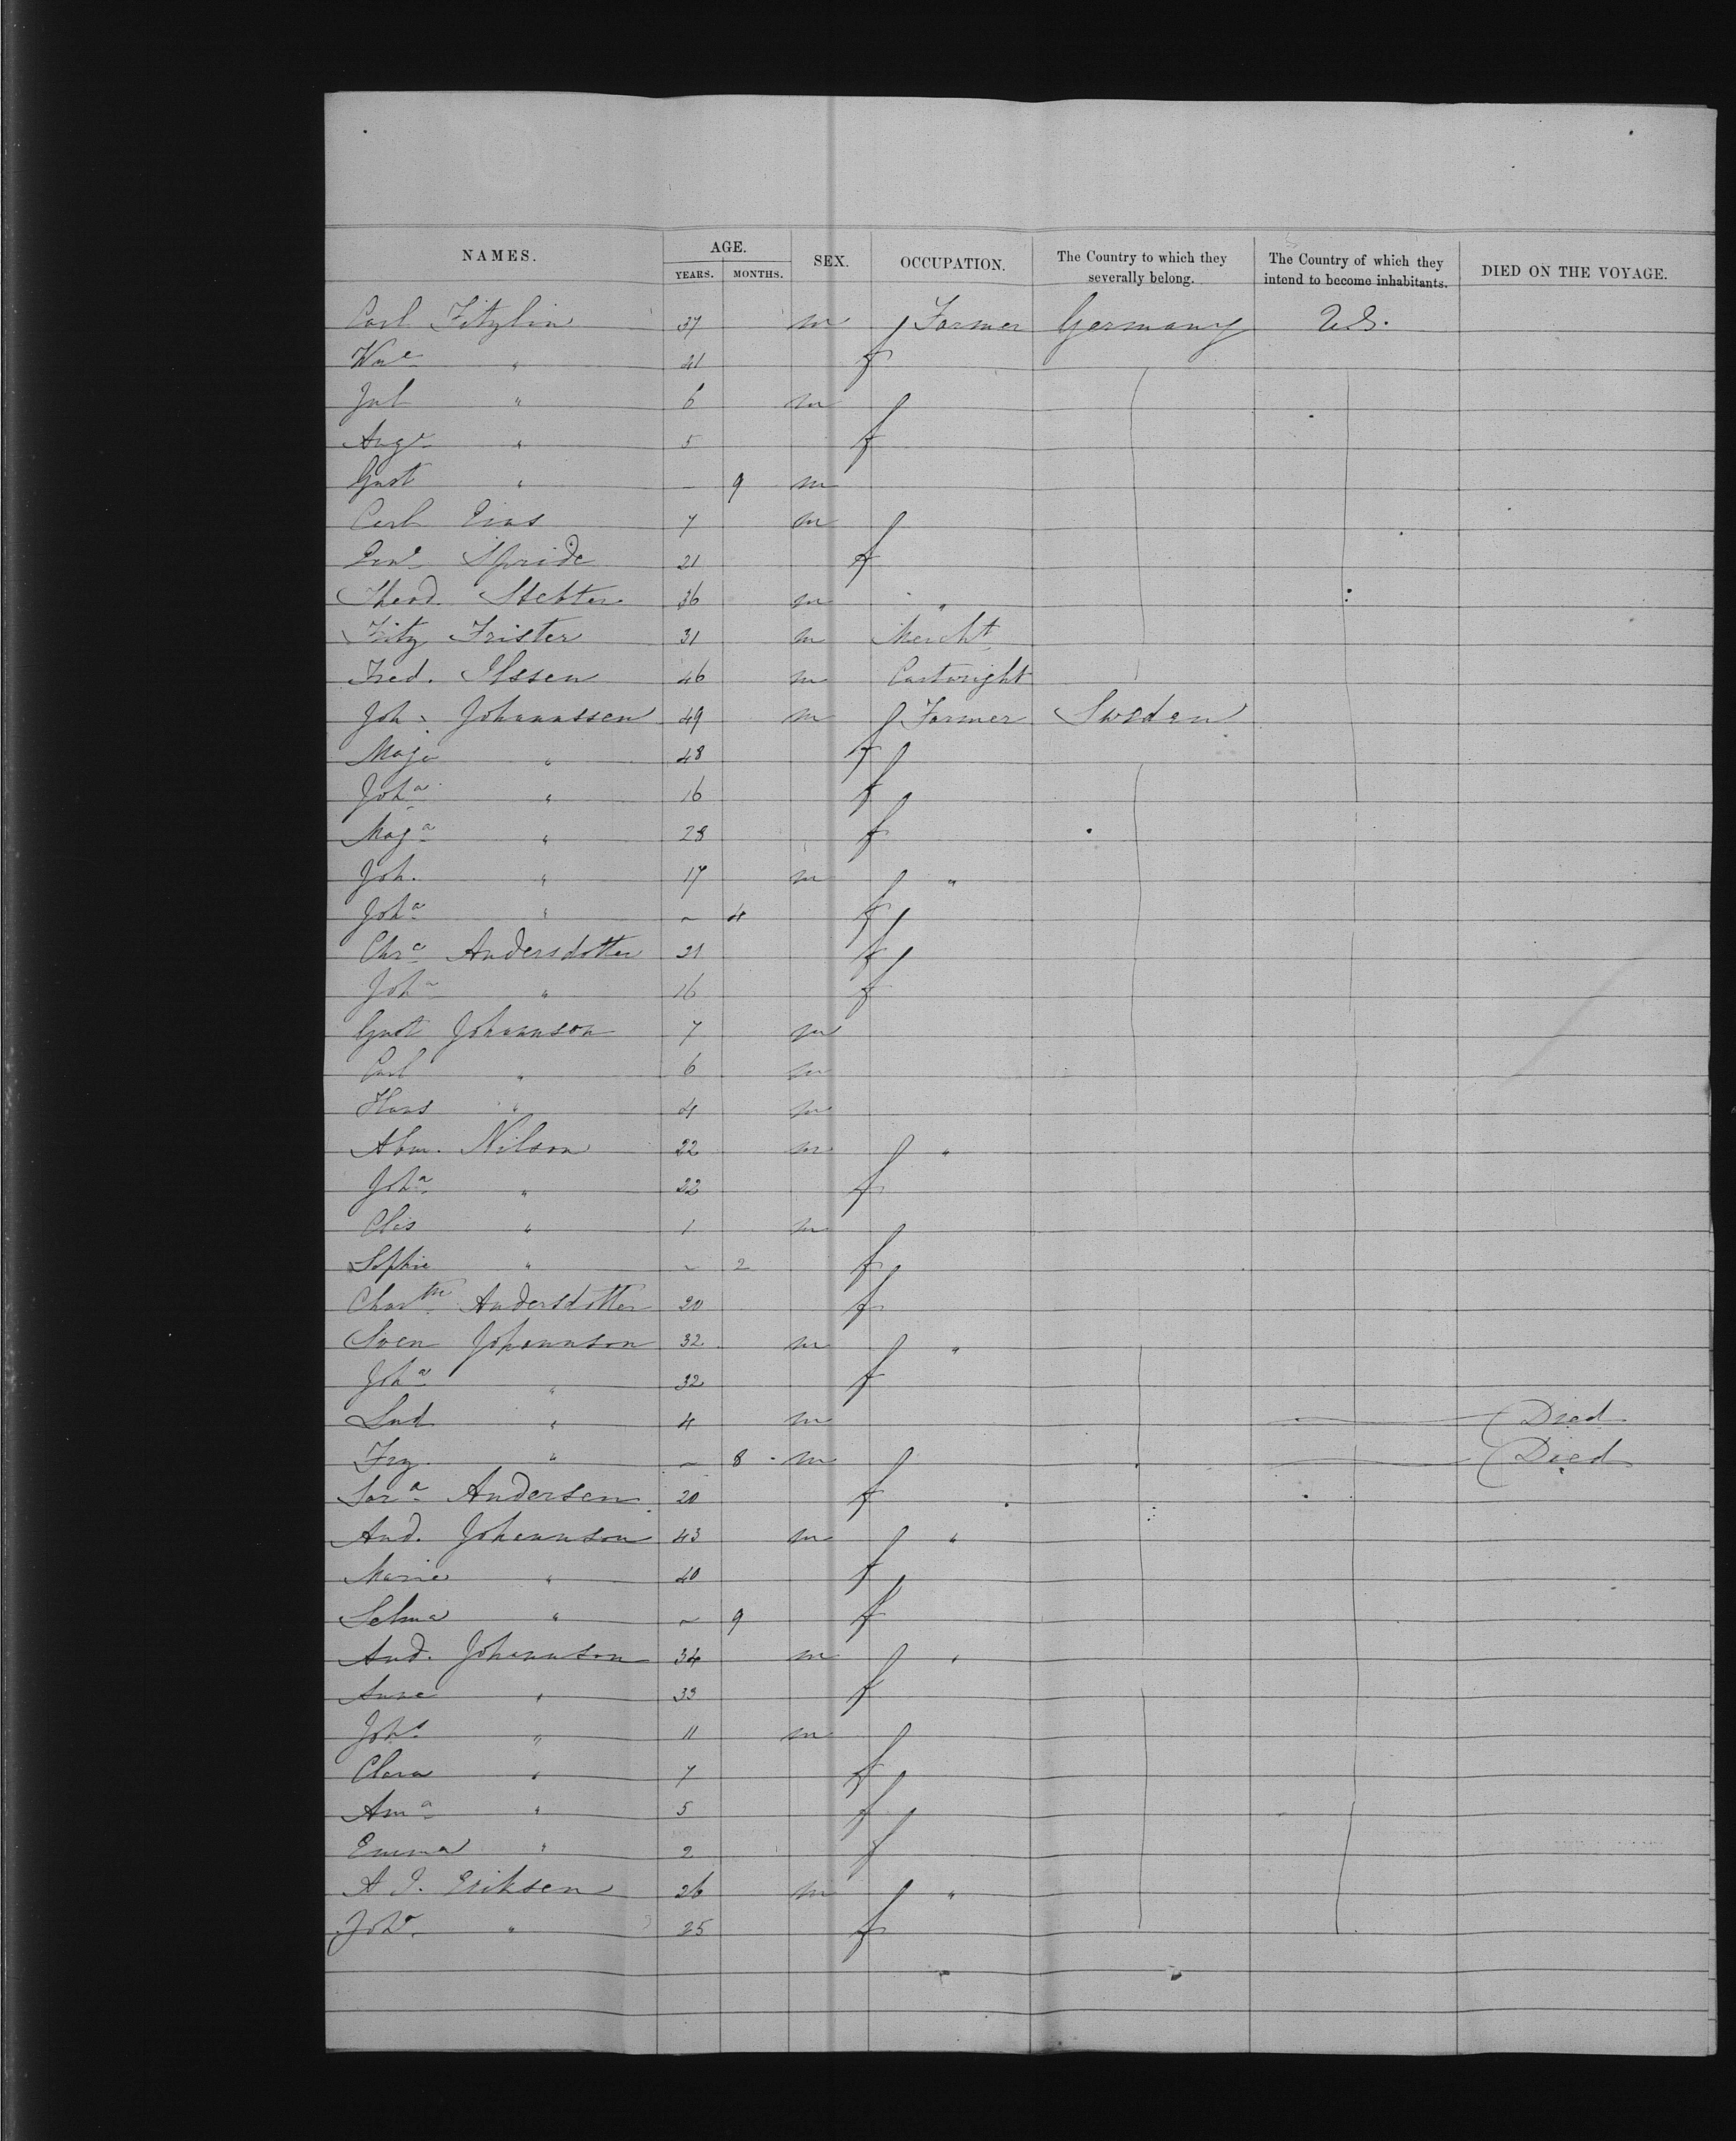 NAMES. AGE. SEX. OCCUPATION. The Country to which they severally belong. The Country of which they intend to become inhabitants. DIED ON THE VOYAGE.
YEARS. MONTHS.
Carl Fitzlin 37 m Farmer Germany U.S.
Wme " 41 f
Jul " 6 m
Auge " 5 f
Gust " – 9 m
Carl 7 m
Spride 21 f
Theod. Stebter 36 m "
Fritz Frister 31 m Mercht
Fred. Ilssen 46 m Cartwright
Joh. Johannssen 49 m Farmer Sweden
Maja " 48 f
Joha " 16 f
Maja " 28 f
Joh. " 17 m "
Joha " ~ 4 f
Chra Andersdotter 21 f
Joha " 16 f
Gust Johannson 7 m
Carl " 6 m
Hans " 4 m
Abm. Nilson 22 m "
Joha " 22 f
Clis " 1 m
Sophie " ~ 2 f
Charthe Andersdotter 20 f
Sven Johannson 32 m "
Joha " 32 f
Lud " 4 m Died
Frz. " ~ 8 m Died
Sara Andersen 20 f
And. Johannson 43 m "
Marie " 40 f
Selma " ~ 9 f
And. Johannson 34 m "
Anna " 33 f
Johs " 11 m
Clara " 7 f
Ama " 5 f
Emma " 2 f
A. J. Eriksen 26 m "
Joha " 25 f